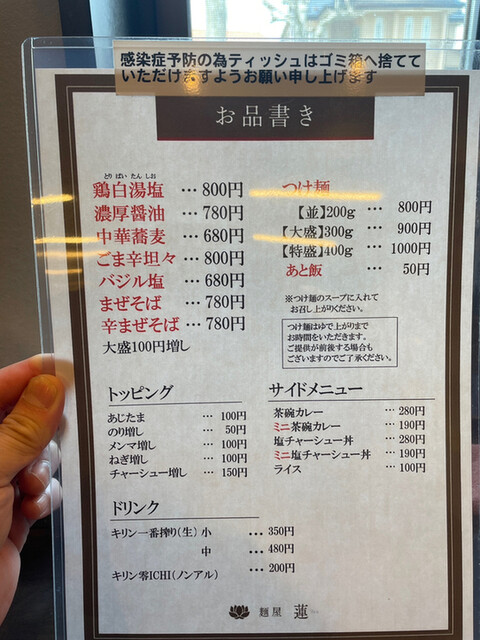 感染症予防の為ティッシュはゴミ箱へ捨てて
いただけますようお願い申し上げます
お品書き
とり ぱい たん しお
鶏白湯塩 … 800円
濃厚醤油 … 780円
中華蕎麦 … 680円
ごま辛坦々 … 800円
バジル塩 … 680円
まぜそば … 780円
辛まぜそば … 780円
大盛100円増し
つけ麺
【並】200g … 800円
【大盛】300g … 900円
【特盛】400g … 1000円
あと飯 … 50円
※つけ麺のスープに入れて
お召し上がりください。
つけ麺はゆで上がりまで
お時間をいただきます。
ご提供が前後する場合も
ございますのでご了承ください。
トッピング
あじたま … 100円
のり増し … 50円
メンマ増し … 100円
ねぎ増し … 100円
チャーシュー増し … 150円
サイドメニュー
茶碗カレー … 280円
ミニ茶碗カレー … 190円
塩チャーシュー丼 … 280円
ミニ塩チャーシュー丼 … 190円
ライス … 100円
ドリンク
キリン一番搾り(生) 小 … 350円
中 … 480円
キリン零ICHI(ノンアル) … 200円
麺屋 蓮